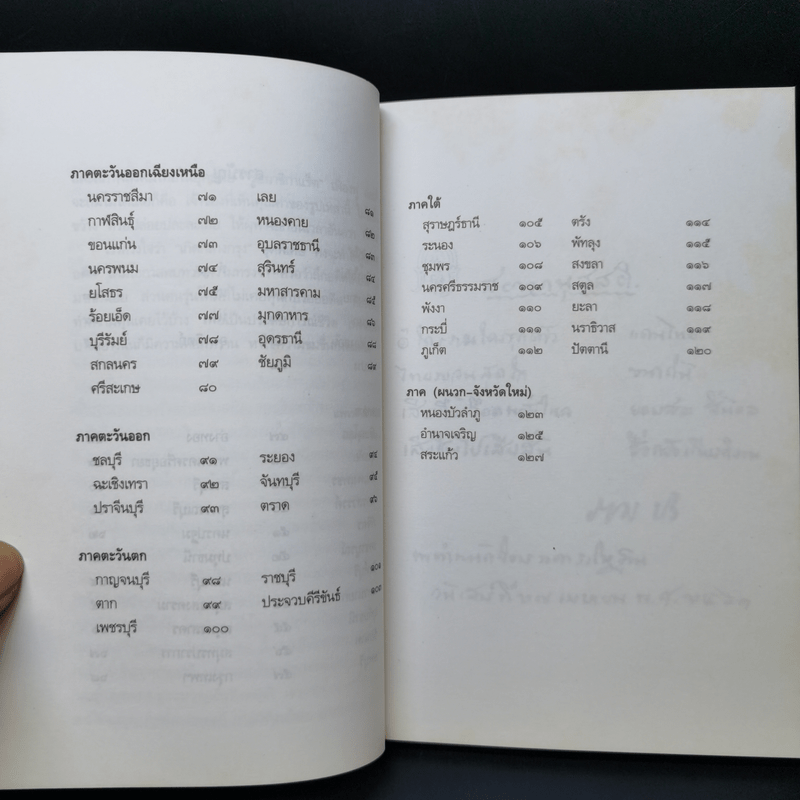 ภาคตะวันออกเฉียงเหนือ
นครราชสีมา ๗๑ เลย ๘๑
กาฬสินธุ์ ๗๒ หนองคาย ๘๒
ขอนแก่น ๗๓ อุบลราชธานี ๘๓
นครพนม ๗๔ สุรินทร์ ๘๔
ยโสธร ๗๕ มหาสารคาม ๘๕
ร้อยเอ็ด ๗๗ มุกดาหาร ๘๖
บุรีรัมย์ ๗๘ อุดรธานี ๘๘
สกลนคร ๗๙ ชัยภูมิ ๘๙
ศรีสะเกษ ๘๐
ภาคตะวันออก
ชลบุรี ๙๑ ระยอง ๙๔
ฉะเชิงเทรา ๙๒ จันทบุรี ๙๕
ปราจีนบุรี ๙๓ ตราด ๙๖
ภาคตะวันตก
กาญจนบุรี ๙๘ ราชบุรี
ตาก ๙๙ ประจวบคีรีขันธ์
เพชรบุรี ๑๐๐
ภาคใต้
สุราษฎร์ธานี ๑๐๕ ตรัง ๑๑๔
ระนอง ๑๐๖ พัทลุง ๑๑๕
ชุมพร ๑๐๘ สงขลา ๑๑๖
นครศรีธรรมราช ๑๐๙ สตูล ๑๑๗
พังงา ๑๑๐ ยะลา ๑๑๘
กระบี่ ๑๑๑ นราธิวาส ๑๑๙
ภูเก็ต ๑๑๒ ปัตตานี ๑๒๐
ภาค (ผนวก-จังหวัดใหม่)
หนองบัวลำภู ๑๒๓
อำนาจเจริญ ๑๒๕
สระแก้ว ๑๒๗